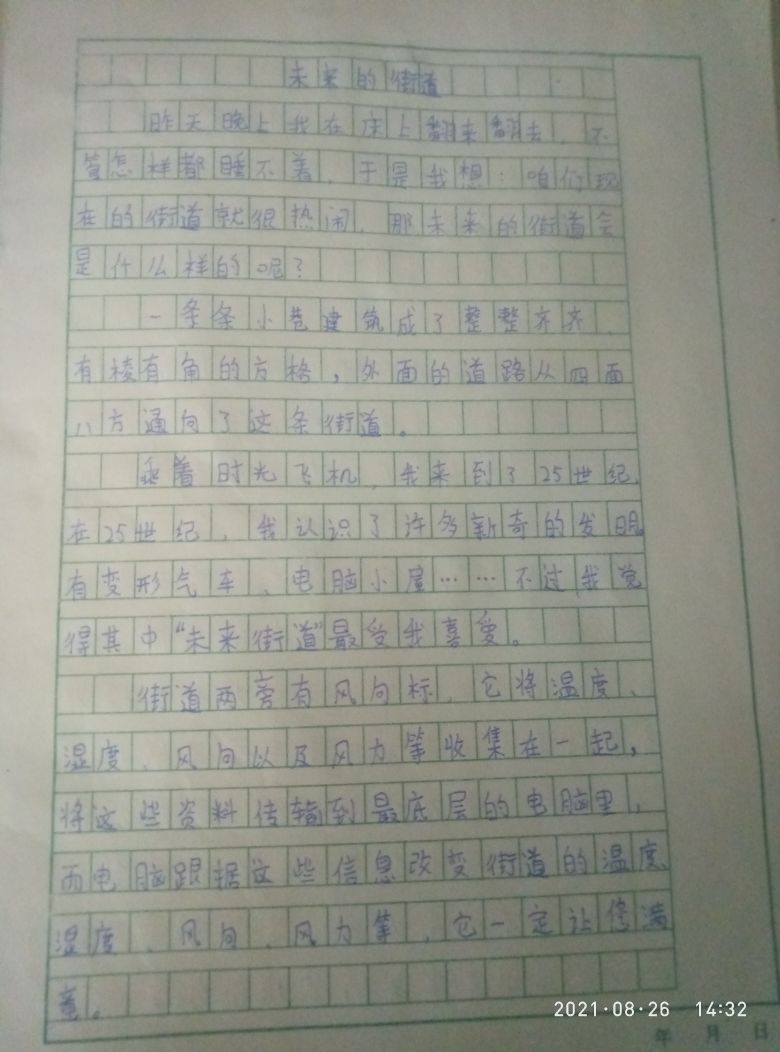 未来的街道
昨天晚上我在床上翻来翻去,不
管怎样都睡不着,于是我想:咱们现
在的街道就很热闹,那未来的街道会
是什么样的呢?
一条条小巷建筑成了整整齐齐、
有棱有角的方格,外面的道路从四面
八方通向了这条街道。
乘着时光飞机,我来到了25世纪,
在25世纪,我认识了许多新奇的发明,
有变形气车、电脑小屋……不过我觉
得其中“未来街道”最受我喜爱。
街道两旁有风向标,它将温度、
湿度、风向以及风力等收集在一起,
将这些资料传输到最底层的电脑里,
而电脑跟据这些信息改变街道的温度
湿度、风向、风力等,它一定让你满
意。
2021·08·26 14:32
年 月 日